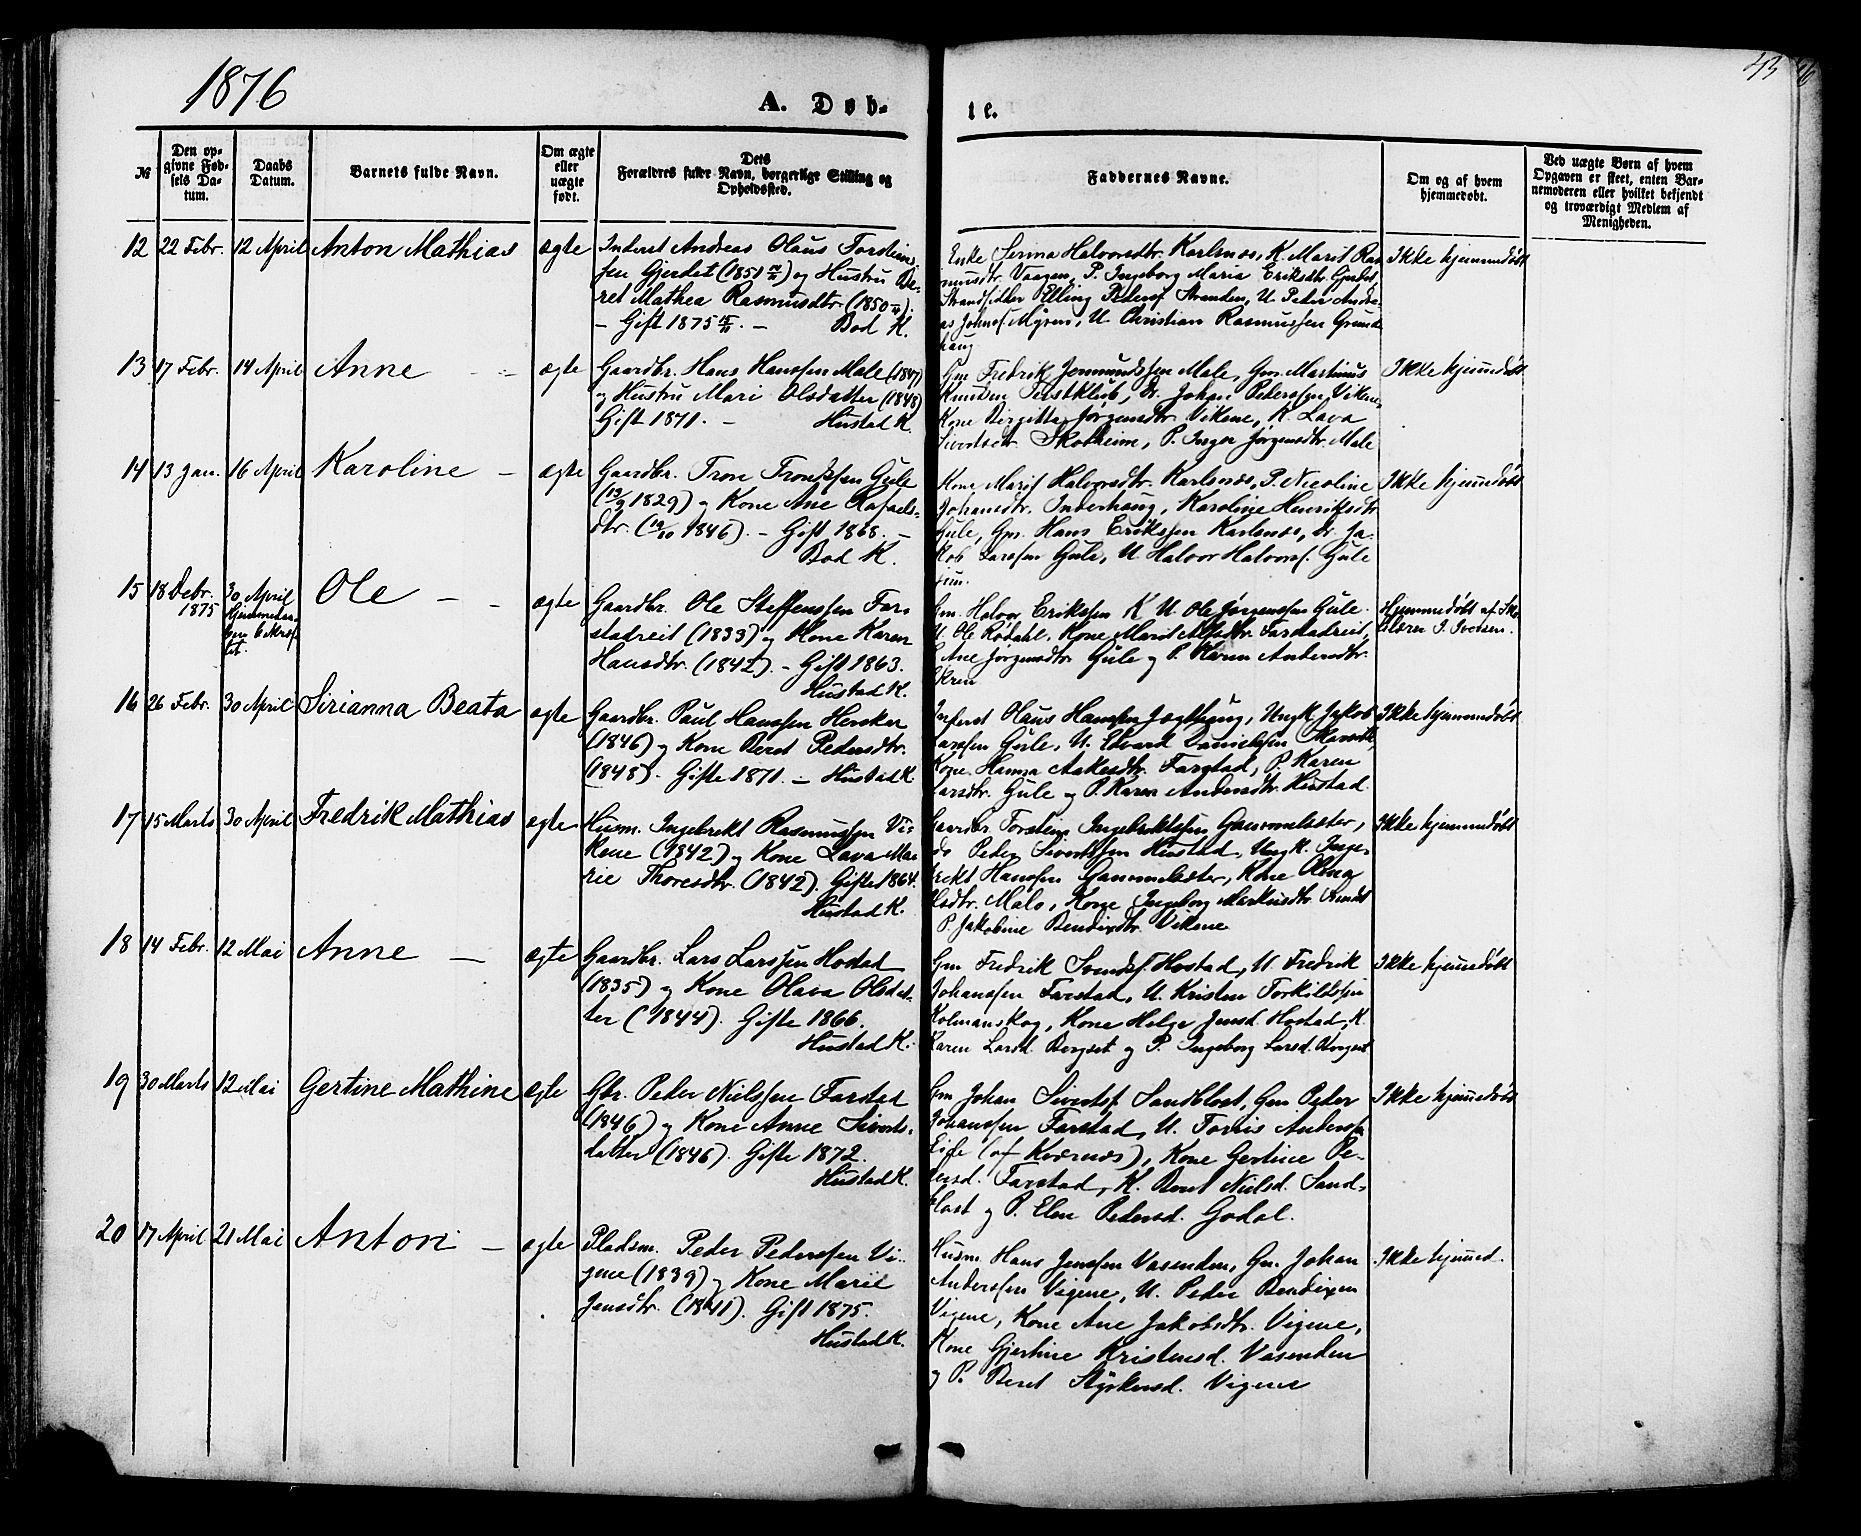 1876
A. Døb-
te.
№
Den op-
givne Fød-
sels Da-
tum.
Daabs
Datum.
Barnets fulde Navn.
Om ægte
eller
uægte
født.
Dets
Forældres fulde Navn, borgerlige Stilling og
Opholdssted.
Faddernes Navne.
Om og af hvem
hjemmedøbt.
Ved uægte Børn af hvem
Opgaven er skeet, enten Bar-
nemoderen eller hvilket bekjendt
og troværdigt Medlem af
Menigheden.
12 22 Febr. 12 April Anton Mathias ægte
Inderst Andreas Olaus Torsteins-
sen Gjerdet (1851) og Hustru Be-
ret Mathea Rasmusdtr. (1850).
- Gift 1875. - Bod K.
Enke Serina Halvorsdtr. Karlsnes, K. Marit Ras-
musdtr. Vaagen, P. Ingeborg Maria Eriksdtr. Gjerdet,
Strandsidder Elling Pederss. Stranden, U. Peter Andre-
as Johnss. Myren, U. Christian Rasmussen Grund-
haug
Ikke hjemmedøbt
13 17 Febr. 14 April Anne ægte
Gaardbr. Hans Hanssen Male (1847)
og Hustru Mari Olsdatter (1848)
Gift 1871. - Hustad K.
Gm Fredrik Jonmundssen Male, Gm. Martinus
Knudsen, Dr. Johan Peterssen Vikene,
Kone Birgitte Jørgensdtr. Vikene, K. Lava
Sivertsdtr. Skotheim, P. Inger Jørgensdtr. Male
Ikke hjemmedøbt
14 13 Jan. 16 April Karoline - ægte
Gaardbr. Tron Trondssen Gule
(13/9 1829) og Kone Ane Rafaels-
dtr. (19/10 1846). - Gift 1868. -
Bod K.
Kone Marit Halvorsdtr. Karlsnes, P. Nicoline
Johansdtr. Inderhaug, Karoline Henriksdtr.
Gule, Gm. Hans Erikssen Karlsnes, Dr. Ja-
kob Larssen Gule, U. Halvor Halvorss. Gule
jun.
Ikke hjemmedøbt
15 18 Debr. 1875 30 April Ole - - ægte
Gaardbr. Ole Steffenssen Far-
stadreit (1833) og Kone Karen
Hansdtr. (1842). - Gift 1863.
Hustad K.
Gm. Halvor Erikssen K U. Ole Jørgenssen Gule.
U. Ole Rødahl, Kone Marit Farstadreit,
Ane Jørgensdtr. Gule og P. Karen Andersdtr.
Hjemmedøbt af Sko-
lelærer I. Iversen.
16 26 Febr. 30 April Sirianna Beata ægte
Gaardbr. Paul Hanssen Hersker
(1846) og Kone Beret Pedersdtr.
(1848). Gifte 1871. - Hustad K.
Inderst Olaus Hanssen, Ungk Jakob
Larssen Gule, U. Edvard Danielssen
Kone Hanna Aakesdtr. Farstad, P. Karen
Larsdtr. Gule og P. Karen Andersdtr. Hustad.
Ikke hjemmedøbt
17 15 Marts 30 April Fredrik Mathias ægte
Husm. Ingebrekt Rasmussen Vi-
kene (1842) og Kone Lava Ma-
rie Thoresdtr. (1842). Gifte 1864.
Hustad K.
Gaardbr. Torstein Ingebrektssen Gammelsæter,
do Peder Sivertssen Hustad, Ungk. Inge-
brekt Hanssen Gammelsæter, Kone Olena
Olsdtr. Male, Kone Ingeborg Markusdtr.
P. Jakobine Bendixdtr. Vikene
Ikke hjemmedøbt
18 14 Febr. 12 Mai Anne - ægte
Gaardbr. Lars Larssen Hostad
(1835) og Kone Olava Olsdat-
ter (1844). Gifte 1866.
Hustad K.
Gm Fredrik Svendss. Hostad, U. Fredrik
Johanssen Farstad, U. Kristen Torkildssen
Kolmanskog, Kone Helge Jensd. Hostad, K.
Karen Larsd. Bergset og P. Ingeborg Larsd. Bergset
Ikke hjemmedøbt
19 30 Marts 12 Mai Gertine Mathine ægte
Gbr. Peder Nielssen Farstad
(1846) og Kone Anne Siverts-
datter (1846). Gifte 1872.
Hustad K.
Gm Johan Sivertss. Sandblost, Gm. Peder
Johanssen Farstad, U. Torris Anderss.
Eide (af Kvernes), Kone Gertine Pe-
dersd. Farstad, K. Beret Nielsd. Sand-
blost og P. Elen Pedersd. Godal.
Ikke hjemmedøbt
20 17 April 21 Mai Anton - ægte
Pladsm. Peder Pederssen Vi-
gene (1839) og Kone Marie
Jensdtr. (1841). Gift 1875.
Hustad K.
Husm. Hans Jenssen Vasenden, Gm. Johan
Anderssen Vigene, U. Peder Bendixen
Vigene, Kone Ane Jakobsdtr. Vigene,
Kone Gjertine Kristensd. Vasenden
og P. Beret Styrkersd. Vigene
Ikke hjemmed.